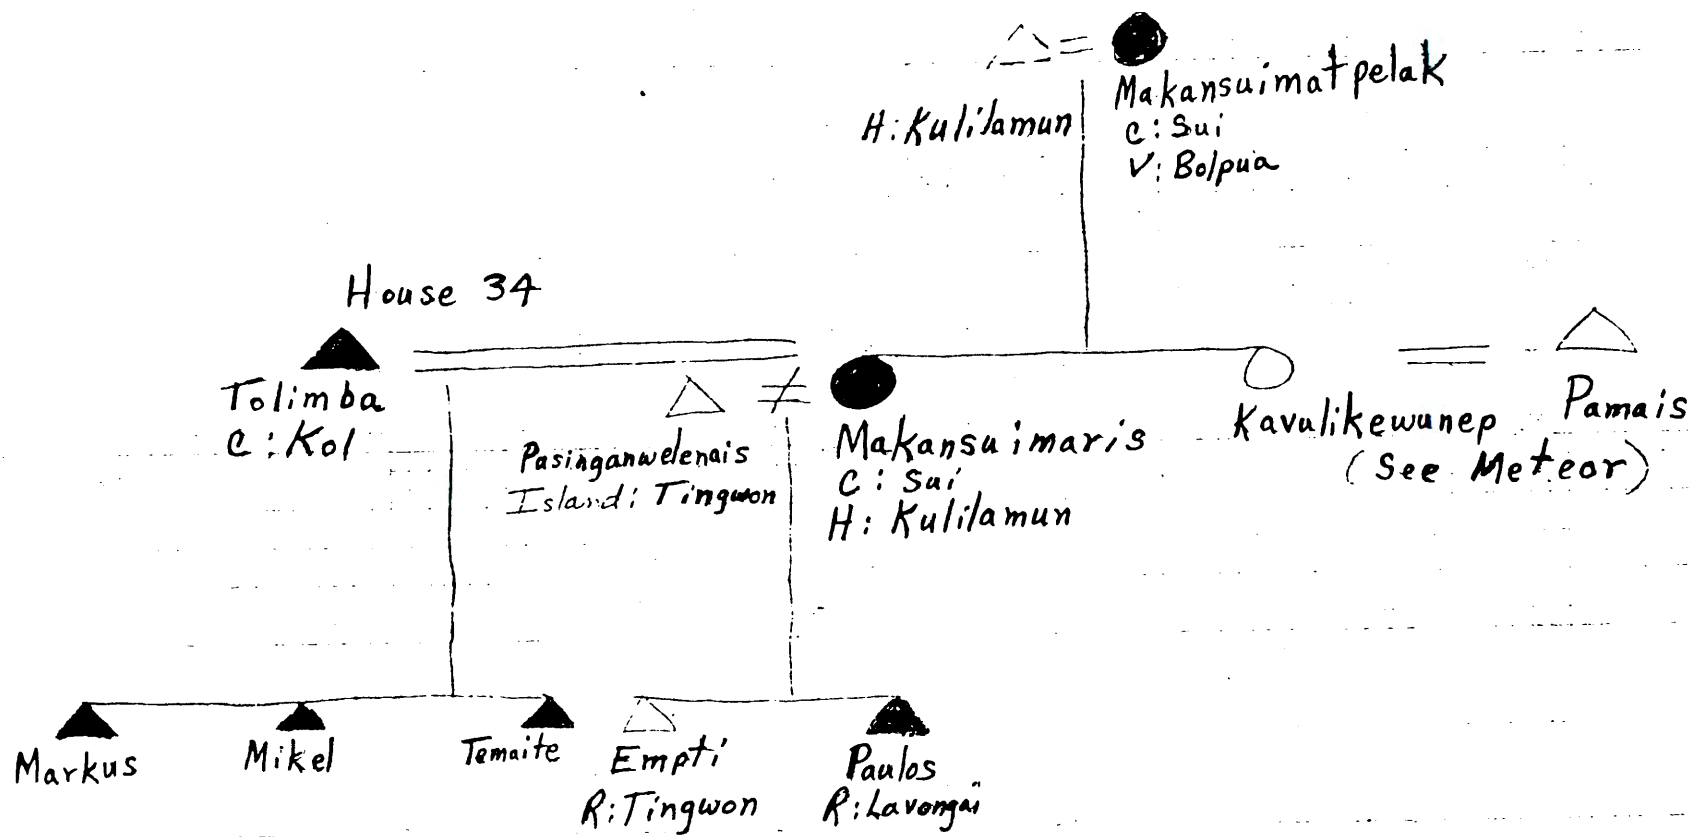 Makansuimatpelak
H: Kulilamun
C: Sui
V: Bolpua
House 34
Tolimba
C: Kol
Pasinganwelenais
Island: Tingwon
Makansuimaris
C: Sui
H: Kulilamun
Kavulikewunep
Pamais
(See Meteor)
Markus
Mikel
Temaite
Empti
R: Tingwon
Paulos
R: Lavongai